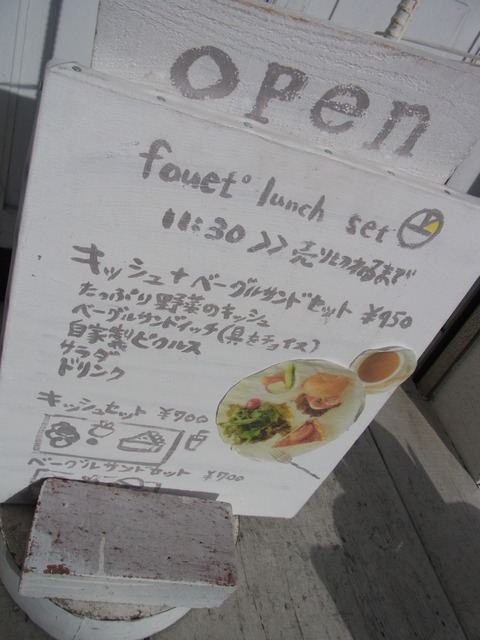 open
fouet° lunch set
11:30 >> 売り切れるまで
キッシュ+ベーグルサンドセット ¥950
たっぷり野菜のキッシュ
ベーグルサンドイッチ(具をチョイス)
自家製ピクルス
サラダ
ドリンク
キッシュセット ¥700
ベーグルサンドセット ¥700